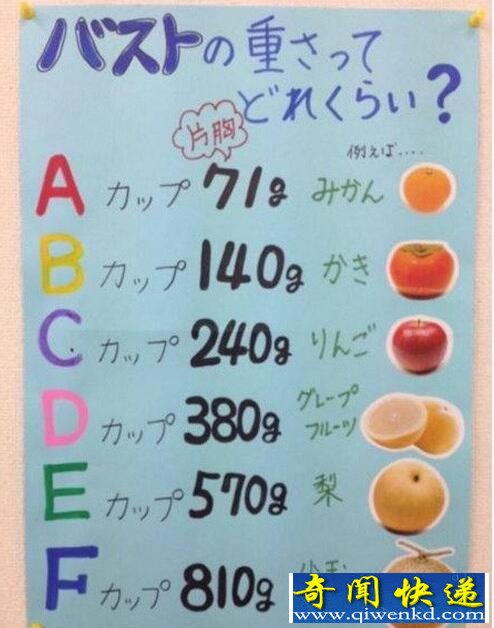 バストの重さって
どれくらい?
片胸
例えば....
A カップ 71g みかん
B カップ 140g かき
C カップ 240g りんご
D カップ 380g グレープ
フルーツ
E カップ 570g 梨
F カップ 810g
奇闻快递
www.qiwenkd.com